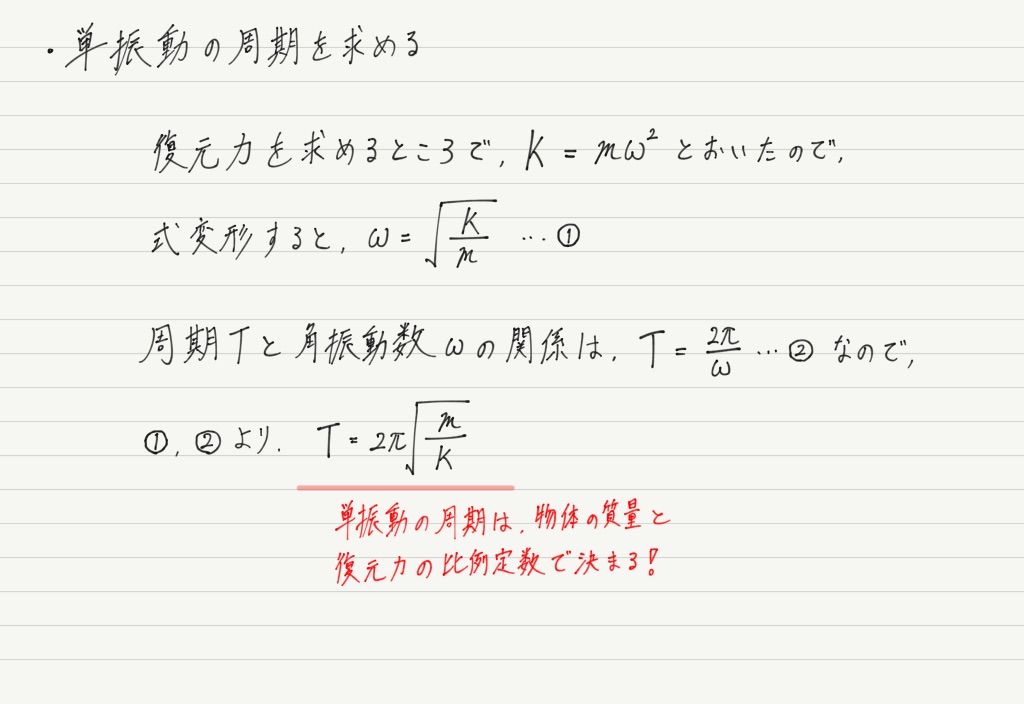 ・単振動の周期を求める
復元力を求めるところで, K = mω² とおいたので,
式変形すると, ω = √(K/m) … ①
周期Tと角振動数ωの関係は, T = 2π/ω … ② なので,
①, ②より, T = 2π√(m/K)
単振動の周期は, 物体の質量と
復元力の比例定数で決まる!